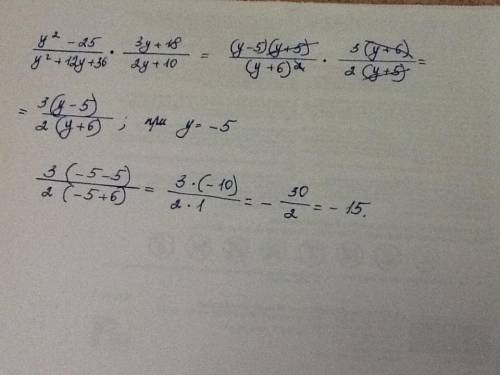 y² - 25 / y² + 12y + 36 · 3y + 18 / 2y + 10 = (y-5)(y+5) / (y+6)² · 3(y+6) / 2(y+5) =
= 3(y-5) / 2(y+6) ; при y = -5
3(-5-5) / 2(-5+6) = 3·(-10) / 2·1 = - 30 / 2 = - 15.